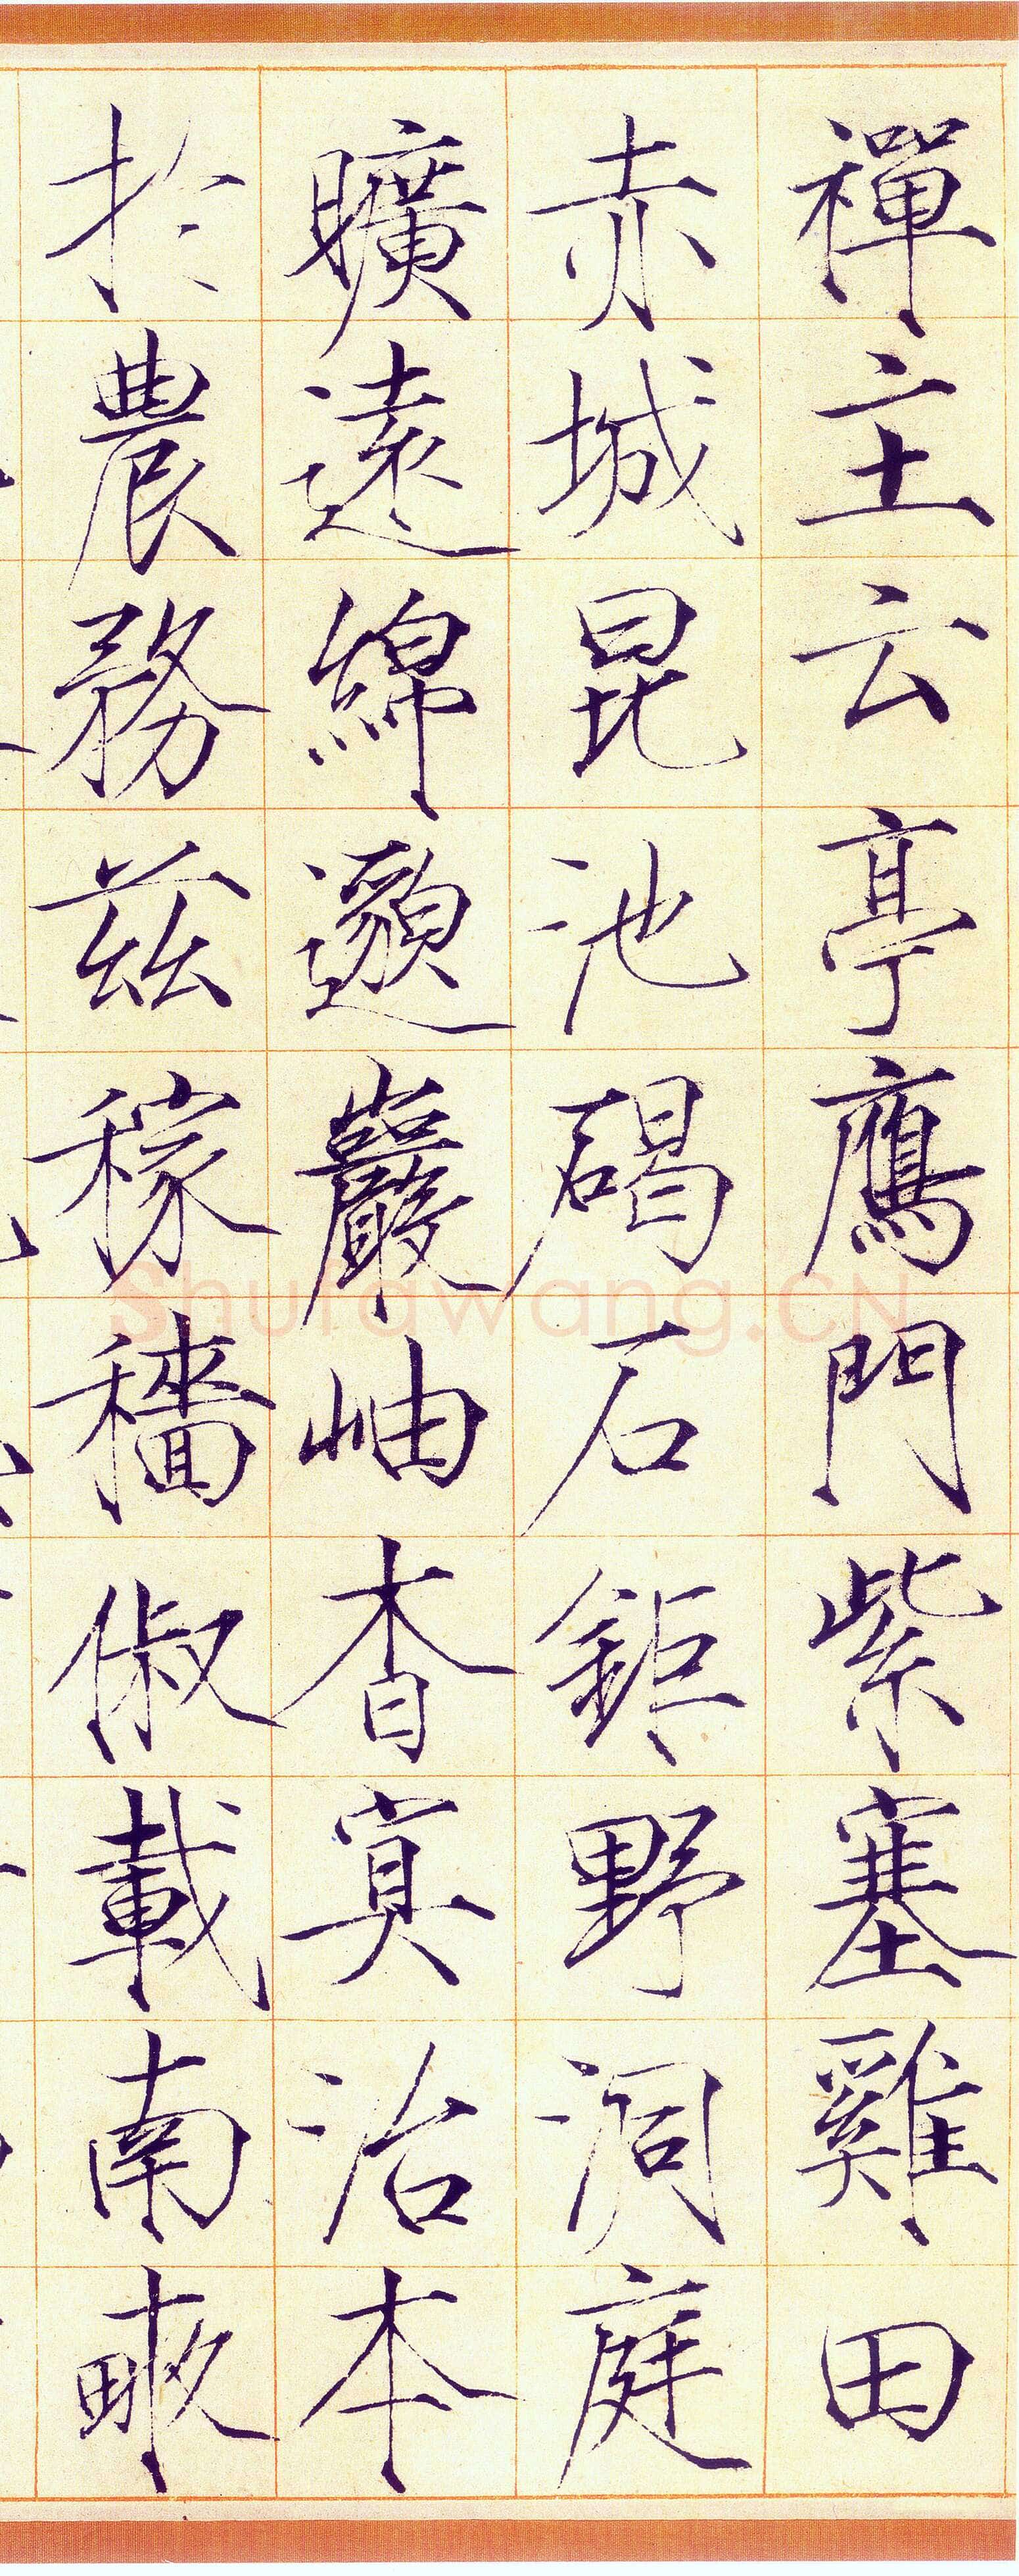 禪主云亭鴈門紫塞雞田
赤城昆池碣石鉅野洞庭
曠遠綿邈巖岫杳冥治本
於農務茲稼穡俶載南畝
Shufawang.CN